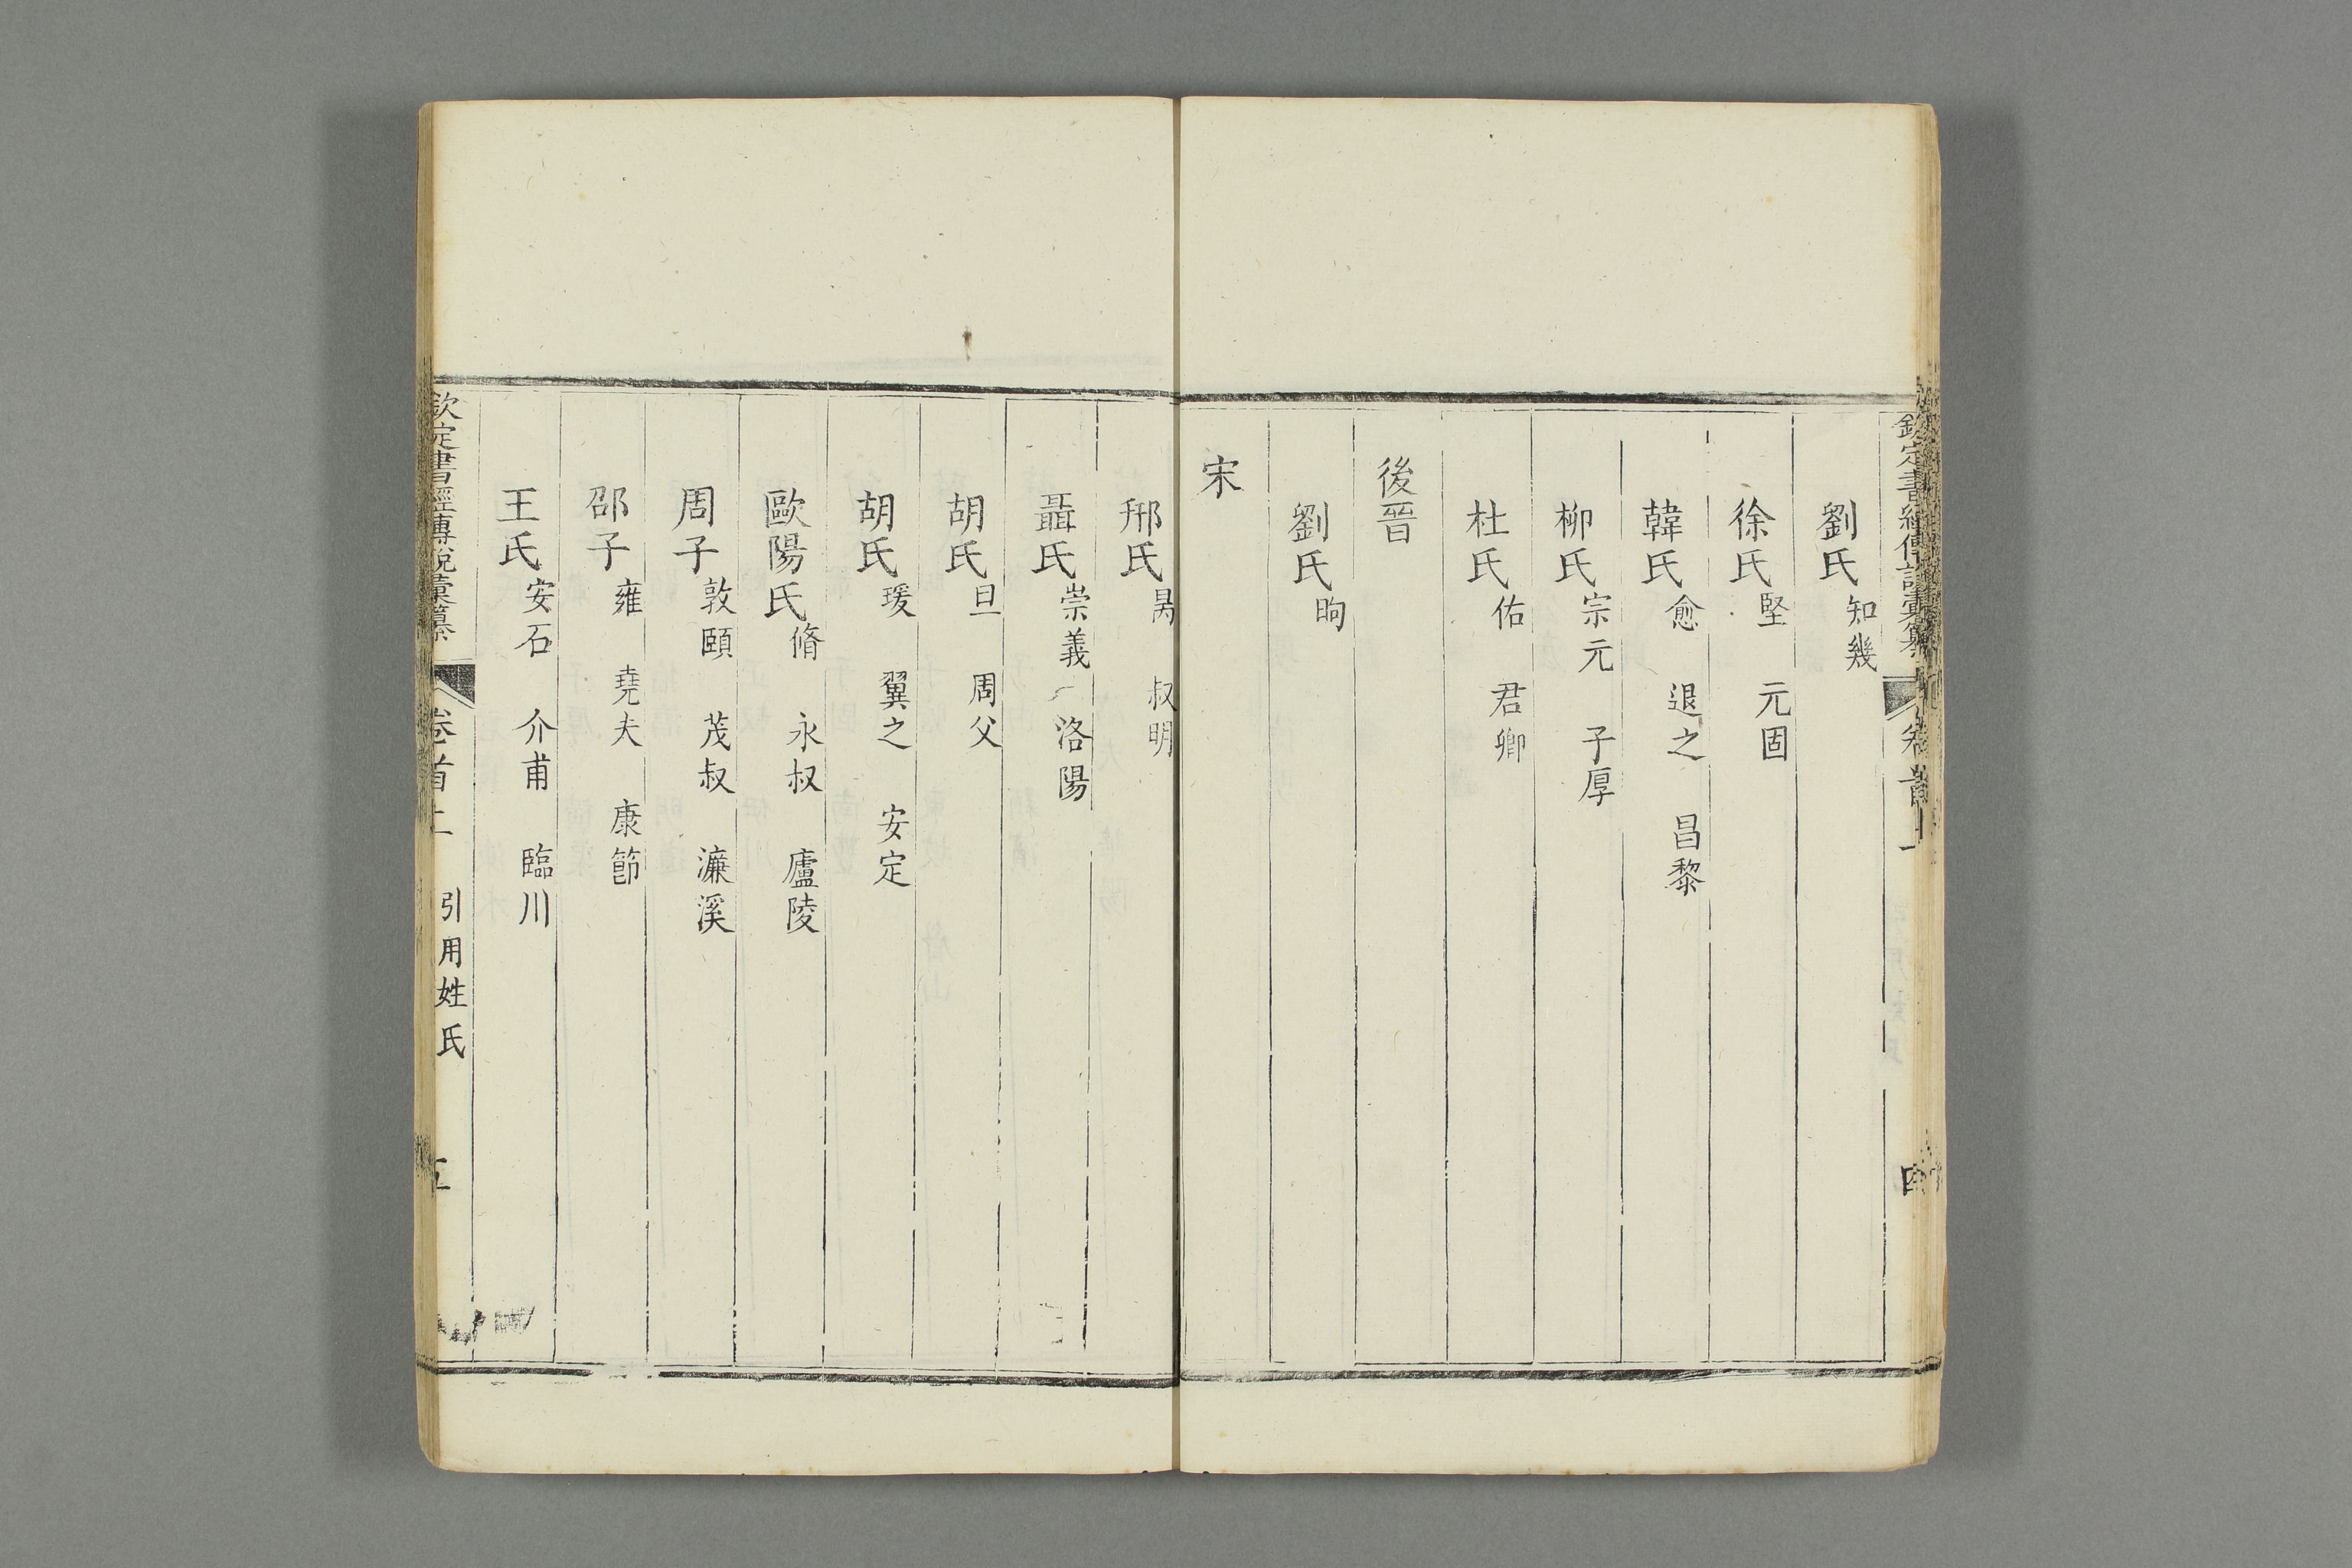 劉氏知幾
徐氏堅 元固
韓氏愈 退之 昌黎
柳氏宗元 子厚
杜氏佑 君卿
後晉
劉氏昫
宋
邢氏昺 叔明
聶氏崇義 洛陽
胡氏旦 周父
胡氏瑗 翼之 安定
歐陽氏脩 永叔 廬陵
周子敦頤 茂叔 濂溪
邵子雍 堯夫 康節
王氏安石 介甫 臨川
欽定書經傳說彙纂 卷首上 引用姓氏 五